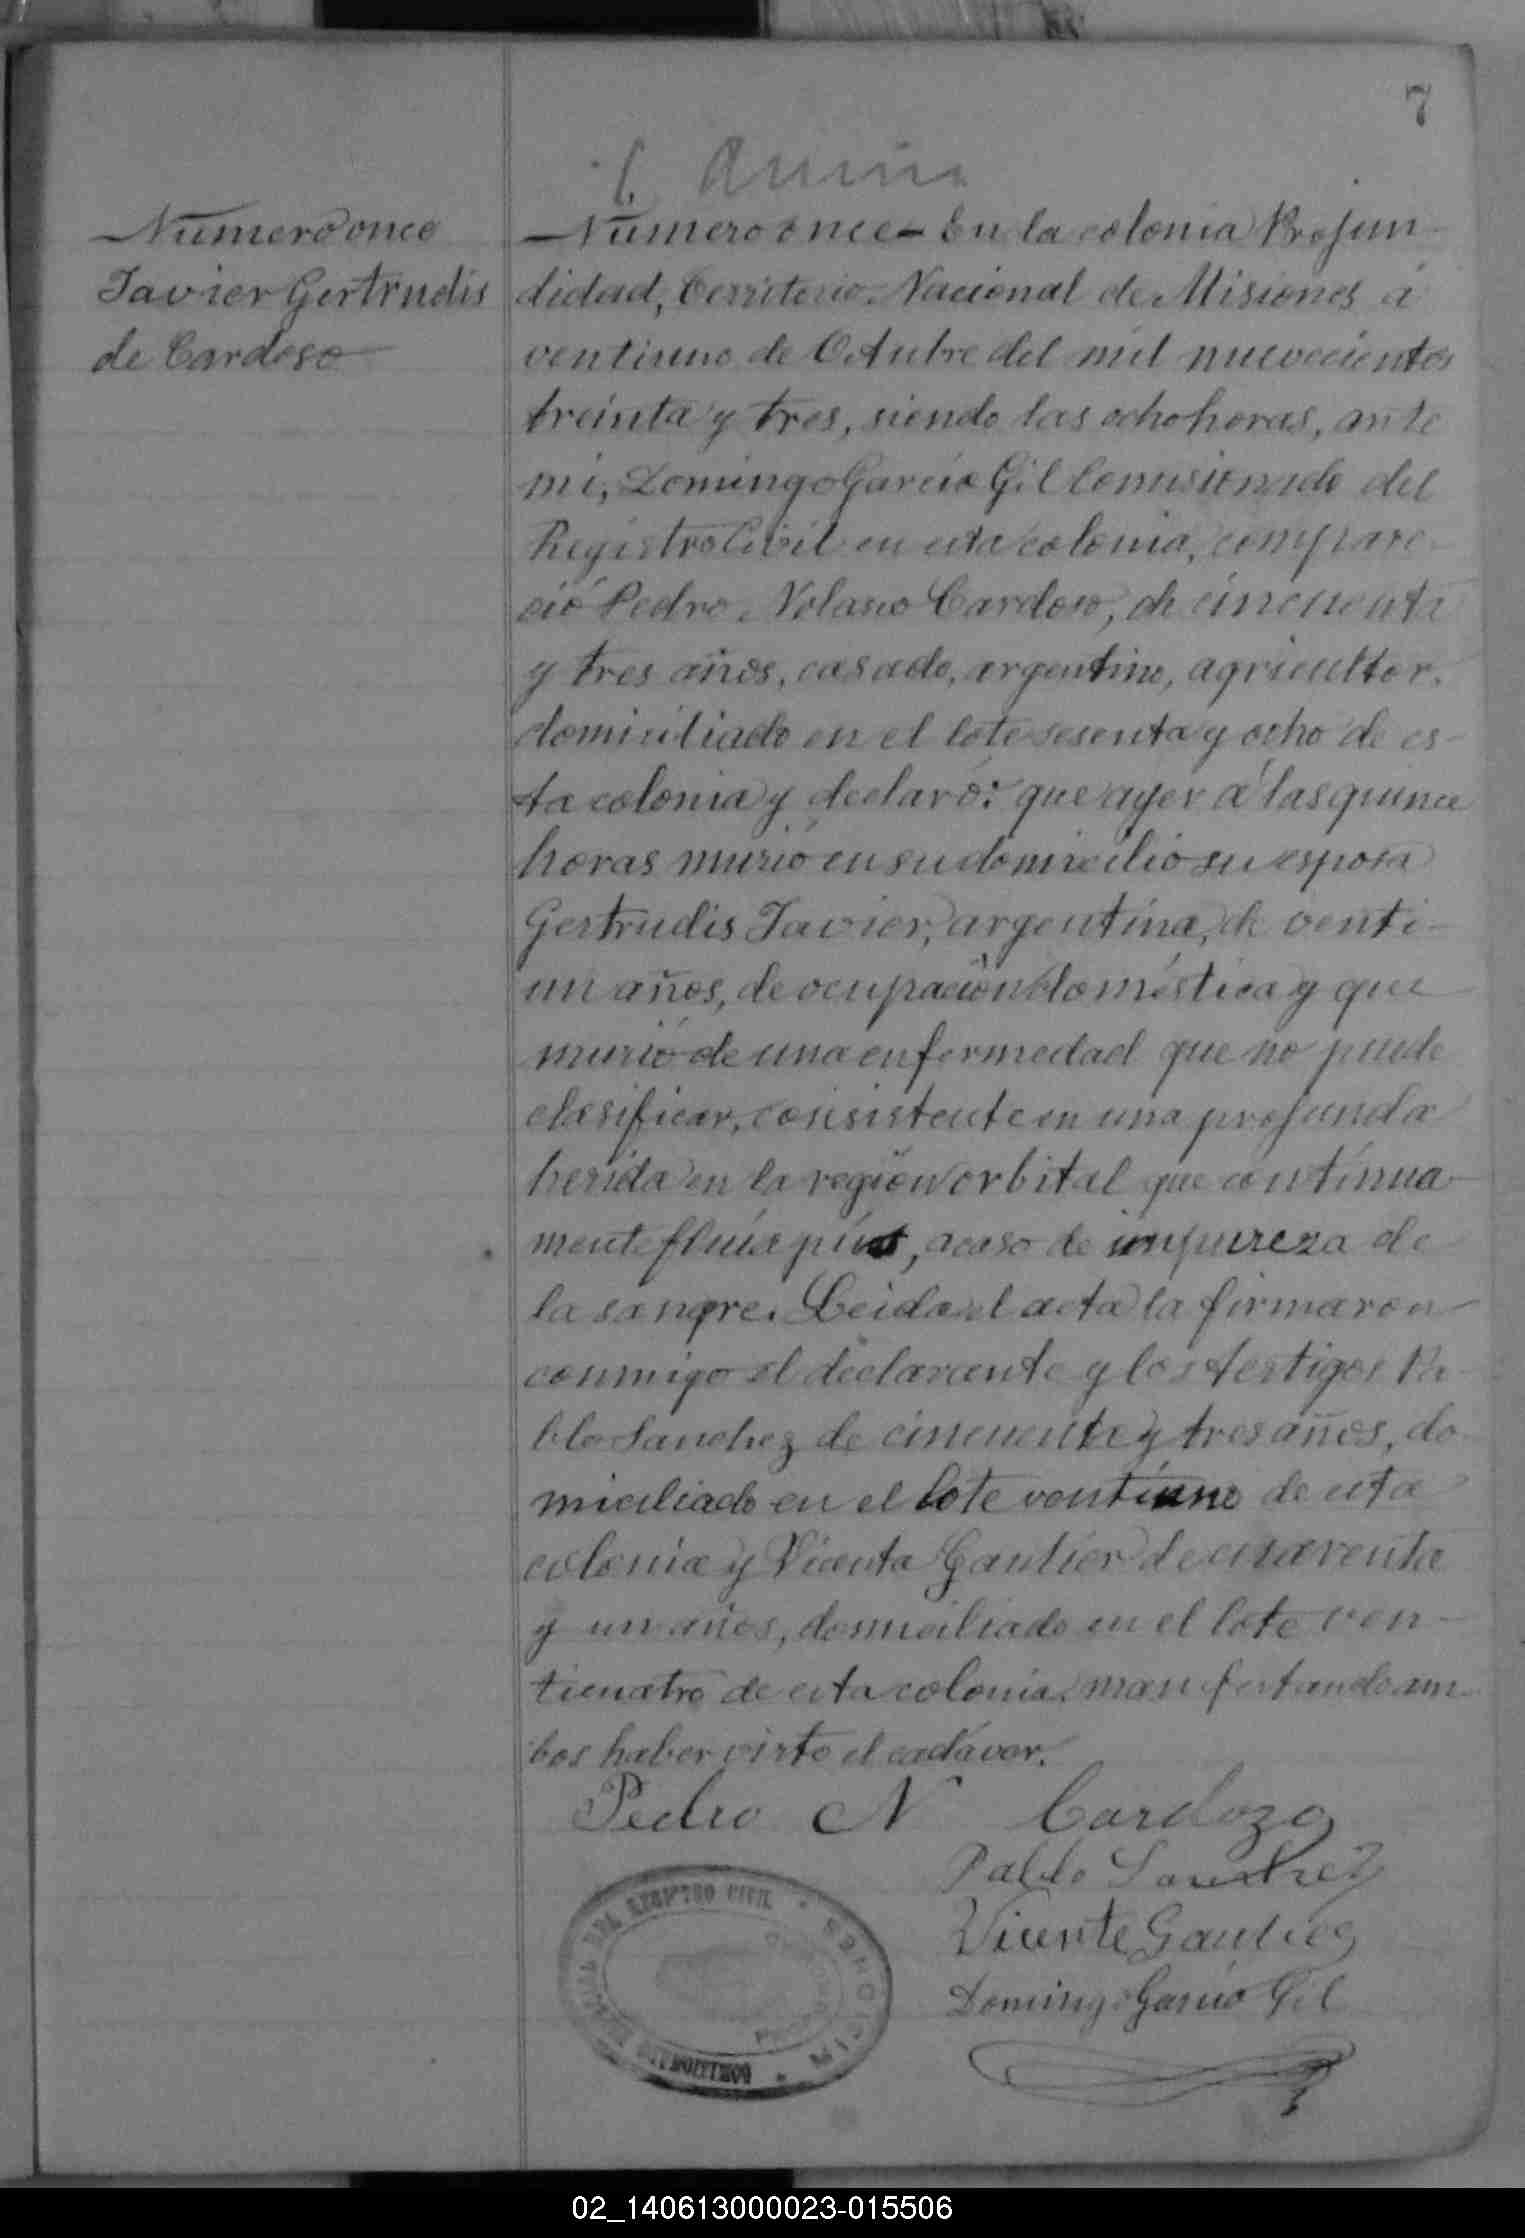 7
Número once
Javier Gertrudis
de Cardoso
—Número once— En la colonia Profun-
didad, Territorio Nacional de Misiones á
ventiuno de Octubre del mil nuevecientos
treinta y tres, siendo las ocho horas, ante
mi, Domingo García Gil Comisionado del
Registro Civil en esta colonia, compare-
ció Pedro Nolasco Cardoso, de cincuenta
y tres años, casado, argentino, agricultor,
domiciliado en el lote sesenta y ocho de es-
ta colonia y declaró: que ayer á las quince
horas murió en su domicilio su esposa
Gertrudis Javier, argentina, de venti-
un años, de ocupación doméstica y que
murió de una enfermedad que no puede
clasificar, consistente en una profunda
herida en la región orbital que contínua-
mente fluía pús, acaso de impureza de
la sangre. Leida el acta la firmaron
conmigo el declarante y los testigos Pa-
blo Sanchez de cincuenta y tres años, do-
miciliado en el lote ventiuno de esta
colonia y Vicente Gautier de cuarenta
y un años, domiciliado en el lote ven-
ticuatro de esta colonia, manifestando am-
bos haber visto el cadáver.
Pedro N Cardozo
Pablo Sanchez
Vicente Gautier
Domingo García Gil
DEL REGISTRO CIVIL
02_140613000023-015506